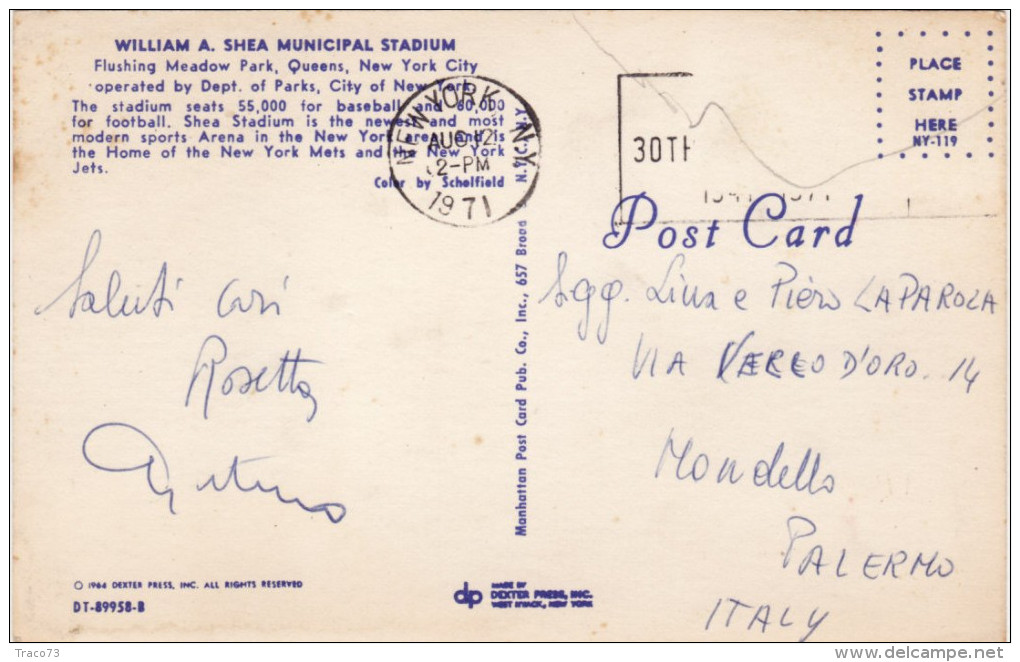 WILLIAM A. SHEA MUNICIPAL STADIUM
Flushing Meadow Park, Queens, New York City
operated by Dept. of Parks, City of New York.
The stadium seats 55,000 for baseball and 60,000
for football. Shea Stadium is the newest and most
modern sports Arena in the New York area and is
the Home of the New York Mets and the New York
Jets.
Color by Scholfield
NEW YORK NY
AUG 12
2-PM
1971
30TH
PLACE
STAMP
HERE
NY-119
Post Card
Manhattan Post Card Pub. Co., Inc., 657 Broad N.Y.C., N.Y.
Saluti cari
Rosetta
Arturo
Sgg. Lina e Piero LAPAROLA
VIA VERCO D'ORO. 14
Mondello
PALERMO
ITALY
© 1964 DEXTER PRESS, INC. ALL RIGHTS RESERVED
DT-89958-B
dp
MADE BY
DEXTER PRESS, INC.
WEST NYACK, NEW YORK
Traco73
www.delcampe.net